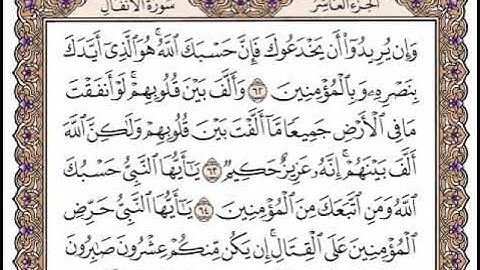 الجزء العاشر سورة الأنفال
وَإِن يُرِيدُوٓا۟ أَن يَخْدَعُوكَ فَإِنَّ حَسْبَكَ ٱللَّهُ ۚ هُوَ ٱلَّذِىٓ أَيَّدَكَ
بِنَصْرِهِۦ وَبِٱلْمُؤْمِنِينَ ٦٢ وَأَلَّفَ بَيْنَ قُلُوبِهِمْ ۚ لَوْ أَنفَقْتَ
مَا فِى ٱلْأَرْضِ جَمِيعًا مَّآ أَلَّفْتَ بَيْنَ قُلُوبِهِمْ وَلَٰكِنَّ ٱللَّهَ
أَلَّفَ بَيْنَهُمْ ۚ إِنَّهُۥ عَزِيزٌ حَكِيمٌ ٦٣ يَٰٓأَيُّهَا ٱلنَّبِىُّ حَسْبُكَ
ٱللَّهُ وَمَنِ ٱتَّبَعَكَ مِنَ ٱلْمُؤْمِنِينَ ٦٤ يَٰٓأَيُّهَا ٱلنَّبِىُّ حَرِّضِ
ٱلْمُؤْمِنِينَ عَلَى ٱلْقِتَالِ ۚ إِن يَكُن مِّنكُمْ عِشْرُونَ صَٰبِرُونَ